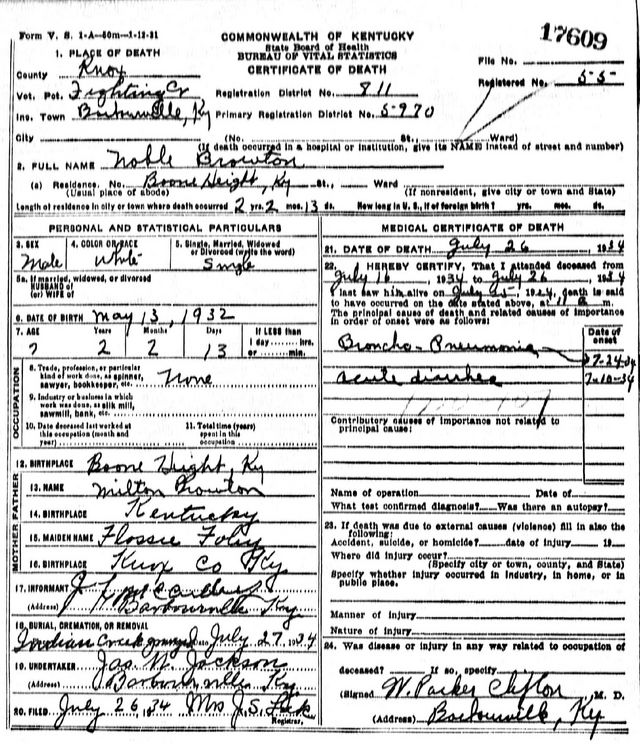 Form V. S. 1-A—50m—1-12-31
COMMONWEALTH OF KENTUCKY
State Board of Health
BUREAU OF VITAL STATISTICS
CERTIFICATE OF DEATH
17609
File No.
Registered No. 55
1. PLACE OF DEATH
County Knox
Vot. Pct. Fighting Cr
Registration District No. 811
Inc. Town Barbourville, Ky
Primary Registration District No. 5970
City (No. St., Ward)
(If death occurred in a hospital or institution, give its NAME instead of street and number)
2. FULL NAME Noble Browton
(a) Residence. No. Boone Height, Ky St., Ward
(Usual place of abode) (If nonresident, give city or town and State)
Length of residence in city or town where death occurred 2 yrs. 2 mos. 13 ds. How long in U. S., if of foreign birth? yrs. mos. ds.
PERSONAL AND STATISTICAL PARTICULARS
3. SEX Male
4. COLOR OR RACE White
5. Single, Married, Widowed or Divorced (write the word) Single
5a. If married, widowed, or divorced
HUSBAND of
(or) WIFE of
6. DATE OF BIRTH May 13, 1932
7. AGE Years 2 Months 2 Days 13 If LESS than
1 day hrs.
or min.
OCCUPATION
8. Trade, profession, or particular
kind of work done, as spinner,
sawyer, bookkeeper, etc. None
9. Industry or business in which
work was done, as silk mill,
sawmill, bank, etc.
10. Date deceased last worked at
this occupation (month and
year)
11. Total time (years)
spent in this
occupation
12. BIRTHPLACE Boone Height, Ky
FATHER
13. NAME Milton Browton
14. BIRTHPLACE Kentucky
MOTHER
15. MAIDEN NAME Flossie Foley
16. BIRTHPLACE Knox Co Ky
17. INFORMANT
(Address) Barbourville Ky
18. BURIAL, CREMATION, OR REMOVAL
Indian Creek July 27 1934
19. UNDERTAKER Jas W. Jackson
(Address) Barbourville Ky
20. FILED July 26, 1934 Mrs J. S.
Registrar.
MEDICAL CERTIFICATE OF DEATH
21. DATE OF DEATH July 26 1934
22. I HEREBY CERTIFY, That I attended deceased from
July 16, 1934 to July 26, 1934
I last saw him alive on July 25, 1934, death is said
to have occurred on the date stated above, at m.
The principal cause of death and related causes of importance
in order of onset were as follows:
Date of onset
Broncho-Pneumonia 7-24-34
acute diarrhea 7-10-34
Contributory causes of importance not related to
principal cause:
Name of operation Date of
What test confirmed diagnosis? Was there an autopsy?
23. If death was due to external causes (violence) fill in also the
following:
Accident, suicide, or homicide? date of injury 19
Where did injury occur?
(Specify city or town, county, and State)
Specify whether injury occurred in industry, in home, or in
public place.
Manner of injury
Nature of injury
24. Was disease or injury in any way related to occupation of
deceased? If so, specify
(Signed W. Parker Clifton, M. D.
(Address) Barbourville, Ky